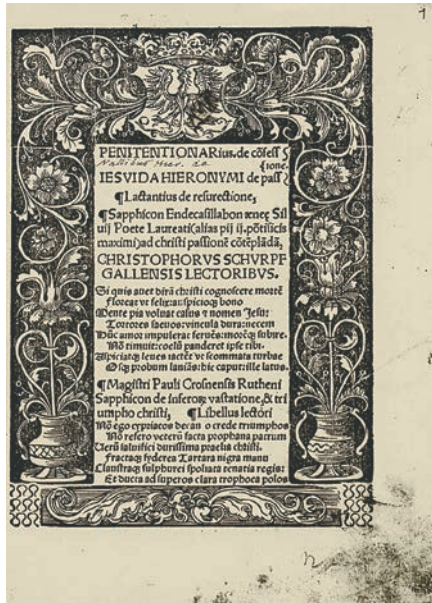 PENITENTIONARius. de cõfess
ione.
Nallibus Hier. de
IESVIDA HIERONYMI de pass
¶Lactantius de resurectione,
¶Sapphicon Endecasillabon æneę Sil
uij Poete Laureati(alias pij ij. põtificis
maximi)ad christi passionē cõtēplādã,
CHRISTOPHORVS SCHVRPF
GALLENSIS LECTORIBVS.
Si quis auet dirã christi cognoscere mortē
Floreat vt felix: auspicioq̃ bono
Mente pia voluat casus & nomen Jesu:
Torrores saeuos: vincula dura: necem
impulerat subire.
coelũ panderet ipse tibi.
leues iactēt ve scommata turbae
probum laniãs: hic caput: ille latus.
¶Magistri Pauli Crosnensis Rutheni
Sapphicon de inferorę vastatione, & tri
umpho christi, ¶Libellus lectori
Nõ ego cypriacos decan o crede triumphos
Nõ refero veterũ facta prophana patrum
Verũ saluifici durissima praelia christi.
fractaq̃ syderea Tartara nigra manu
Claustraq̃ sulphurei spoliata regis:
Et ducta ad superos clara trophoea polos